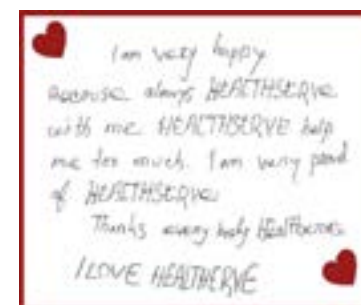 I am very happy
Because always HEALTHSERVE
with me. HEALTHSERVE help
me too much. I am very proud
of HEALTHSERVE
Thanks every body Healthserve
I LOVE HEALTHSERVE